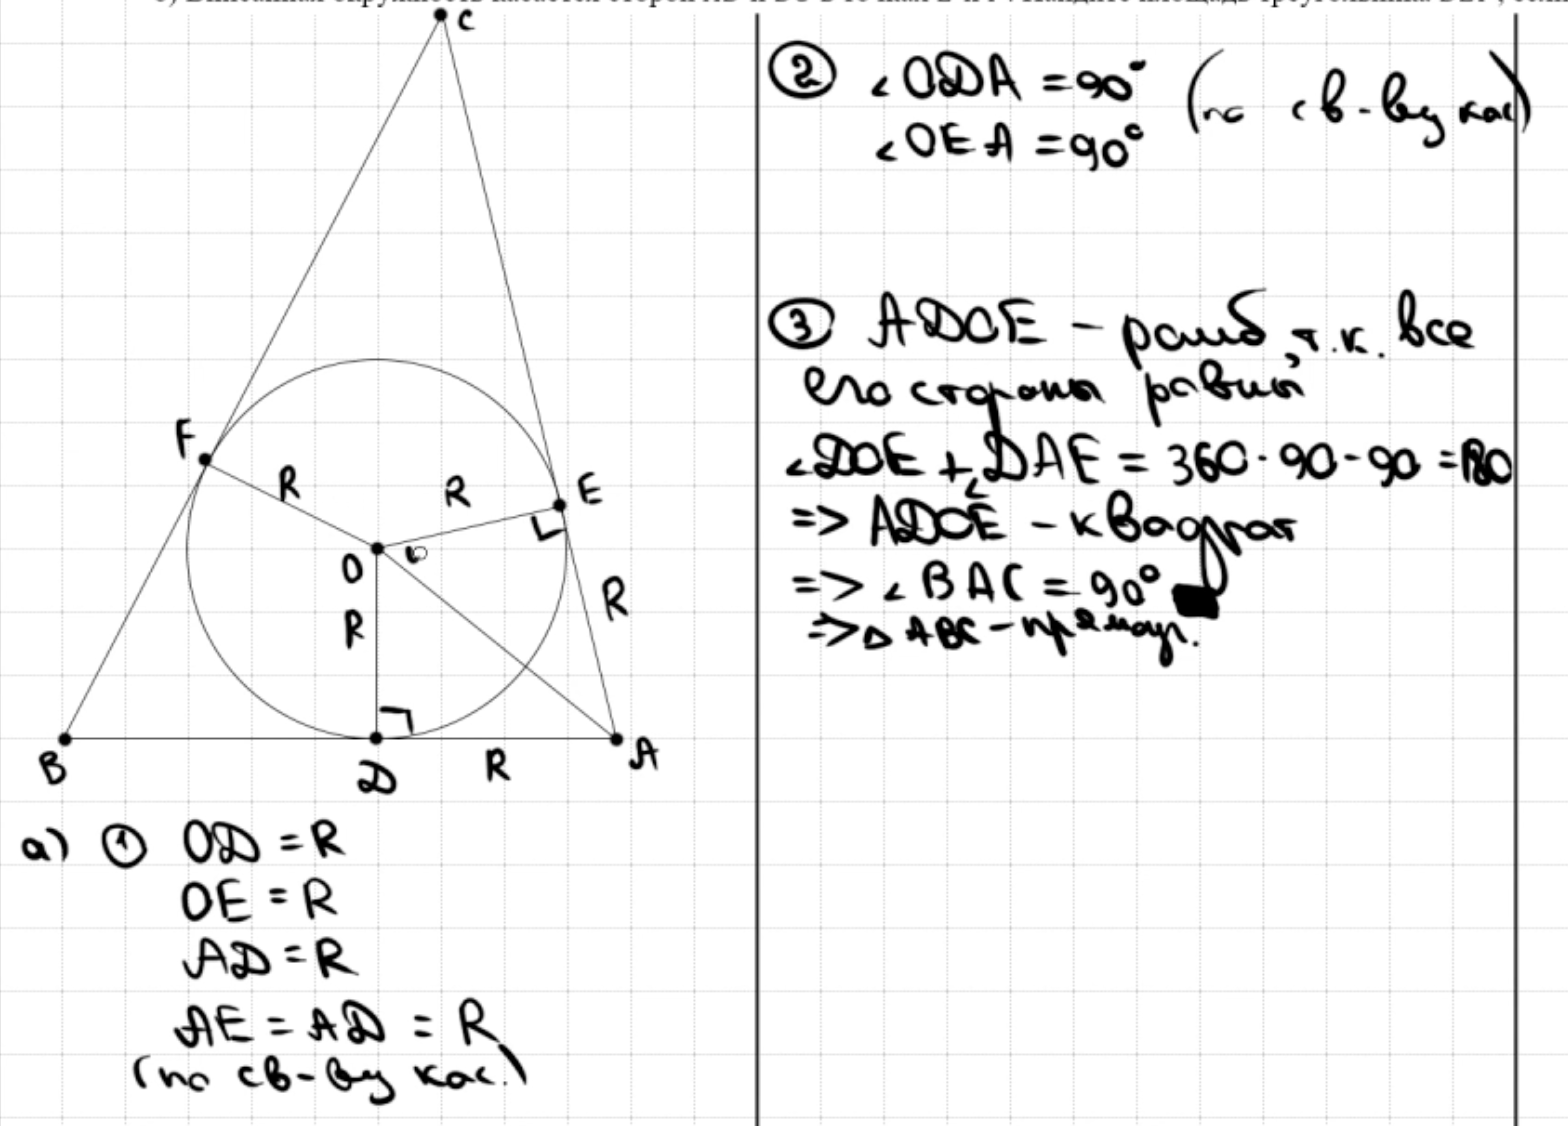 C
F
R
R
E
O
R
R
B
D
R
A
а) ① OD = R
OE = R
AD = R
AE = AD = R
(по св-ву кас.)
② ∠ODA = 90° (по св-ву кас)
∠OEA = 90°
③ ADOE - ромб, т.к. все
его стороны равны
∠DOE + ∠DAE = 360 - 90 - 90 = 180
=> ADOE - квадрат
=> ∠BAC = 90°
=> △ABC - прямоуг.